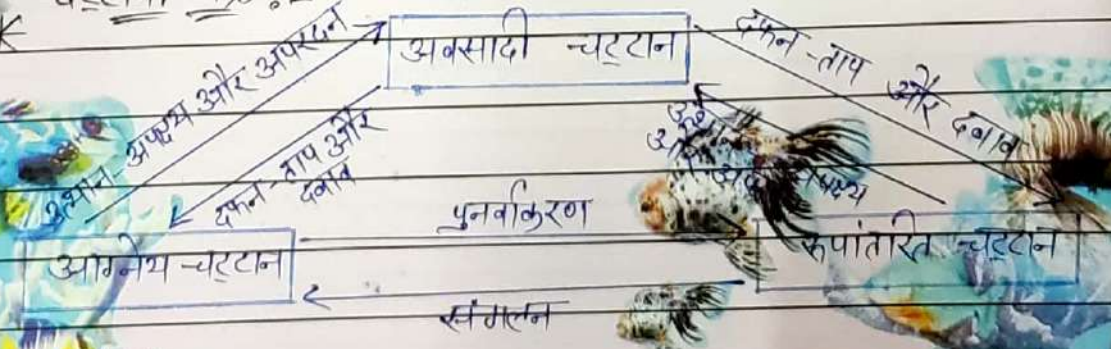 अवसादी चट्टान
उत्थान अपक्षय और अपरदन
दफन-ताप और दबाव
दफन-ताप और
दबाव
पुनर्वाकरण
आग्नेय चट्टान
रूपांतरित चट्टान
संगलन